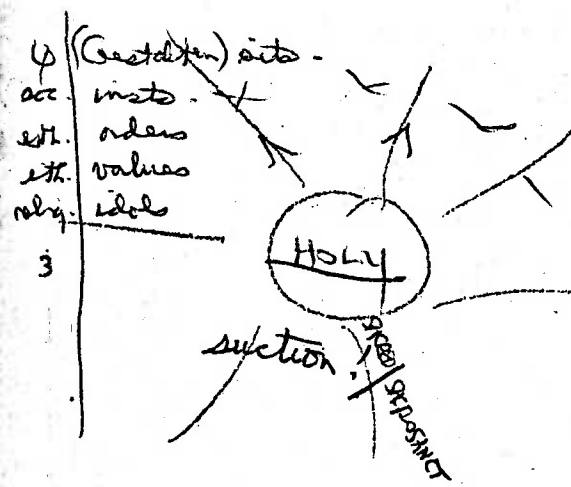 ψ (Gestalten) sits.
occ. insts.
esth. orders
eth. values
relig. idols
3
HOLY
suction.
SACRED/SACROSANCT